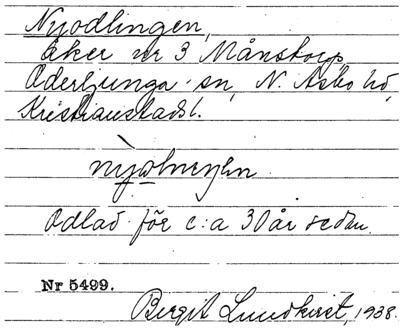 Nyodlingen,
åker nr 3 Månstorp,
Oderljunga sn, N. Åsbo hd,
Kristianstads l.
Odlad för c:a 30 år sedan.
Nr 5499.
Birgit Lundkvist, 1938.